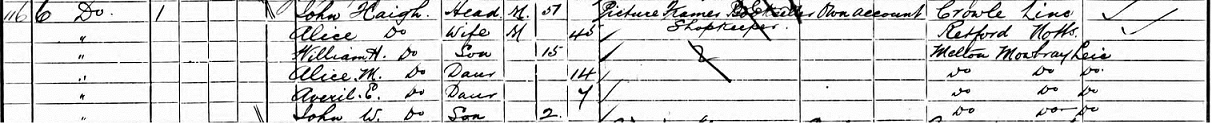 116 6 Do. 1 John Haigh. Head M. 51 Picture Frames Own account Crowle Linc
" Alice Do Wife M 45 Shopkeeper. Retford Notts.
" William H. Do Son 15 Melton Mowbray Leic
" Alice. M. Do Daur 14 Do Do Do.
" Averil. E. Do Daur 7 Do Do Do
" John W. Do Son 2. Do Do Do